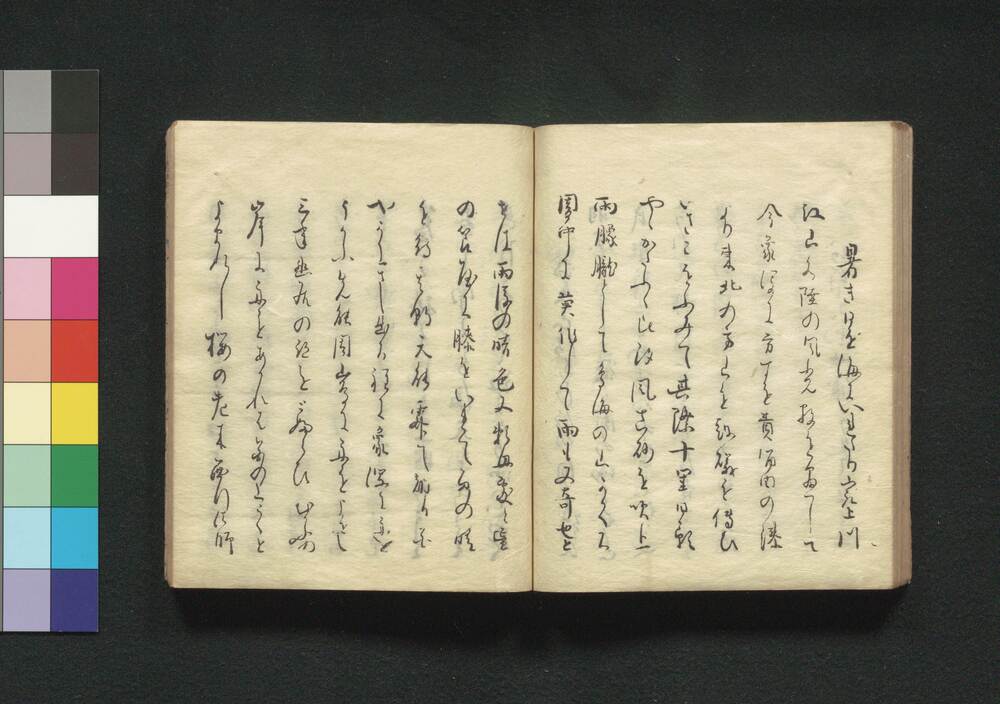 暑き日を海にいれたり最上川
江山水陸の風光数を尽して
今象潟に方寸を責酒田の湊
より東北の方山を越礒を伝ひ
いさこをふみて其際十里日影
やゝかたふく比汐風真砂を吹上
雨朦朧として鳥海の山かくる
闇中に莫作して雨も又奇也と
せは雨後の晴色又頼母敷と蜑
の苫屋に膝をいれて雨の晴
を待其朝天能霽て朝日花
やかにさし出る程に象潟に舟を
うかふ先能因嶋に舟をよせて
三年幽居の跡を訪ひむかふの
岸に舟をあかれは花の上こくと
よまれし桜の老木西行法師